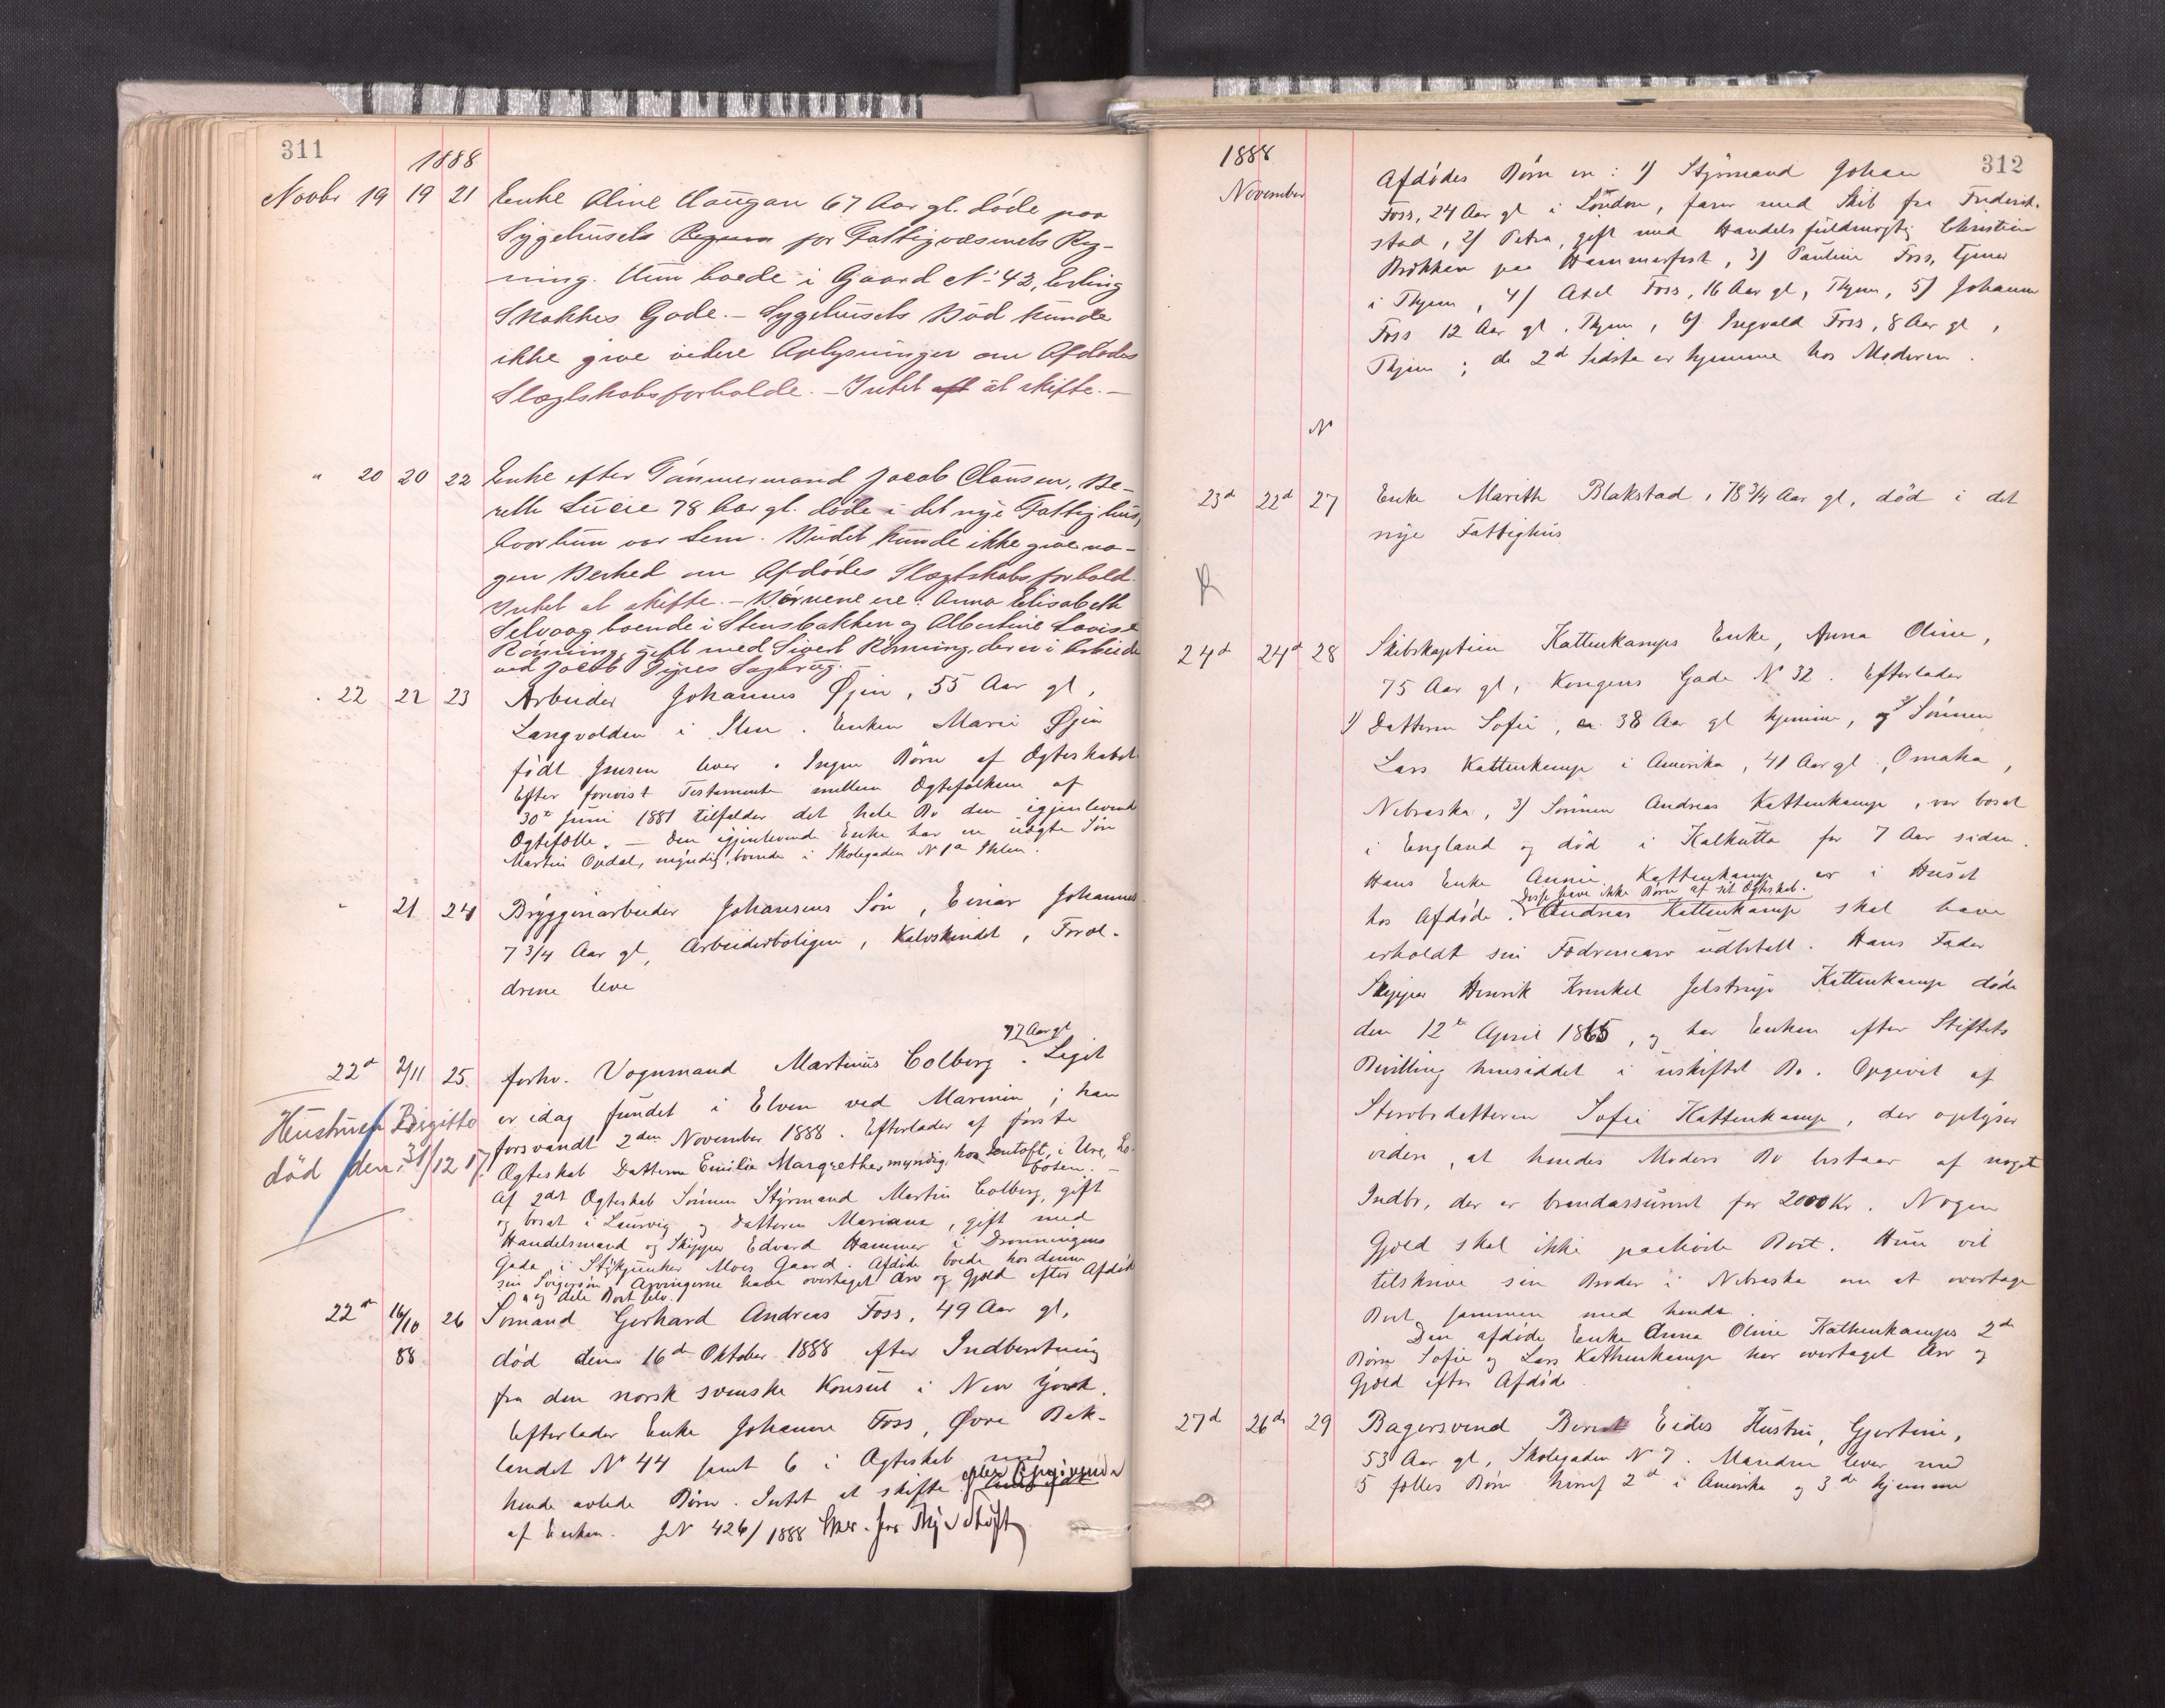 311
1888
Novbr 19 19 21 Enke Aline Haugan 67 Aar gl. døde paa
Sygehusets Regning for Fattigvæsenets Reg-
ning. Hun boede i Gaard No 43, Erling
Skakkes Gade. – Sygehusets Bud kunde
ikke give videre Oplysninger om Afdødes
Slægtskabsforholde. – Intet at skifte. –
" 20 20 22 Enke efter Tømmermand Jacob Clausen, Be-
rethe Lucie 78 Aar gl. døde i det nye Fattighus,
hvor hun var Lem. Budet kunde ikke give no-
gen Besked om Afdødes Slægtskabsforhold.
Intet at skifte. – Børnene ere: Anna Elisabeth
Selvaag boende i Stensbakken og Albertine Lovise
Rønning, gift med Sivert Rønning, der er i Arbeide
ved Jacob Digres Sagbrug. –
" 22 22 23 Arbeider Johannes Øjen, 55 Aar gl,
Langvolden i Ilen. Enken Marie Øjen
født Jensen lever. Ingen Børn af Ægteskabet.
Efter forevist Testamente mellem Ægtefolkene af
30te Juni 1881 tilfalder det hele Bo den igjenlevende
Ægtefælle. – Den igjenlevende Enke har en uægte Søn
Martin Opdal, myndig, boende i Skolegaden No 1a Ihlen.
" 21 24 Bryggeriarbeider Johansens Søn, Einar Johannes
7 3/4 Aar gl, Arbeiderboligen, Kalvskindet, Foræl-
drene leve
77 Aar gl
22d 2/11 25 forhv. Vognmand Martinus Colberg. Liget
er idag fundet i Elven ved Marinen; han
Hustruen Birgitte
forsvandt 2den November 1888. Efterlader af første
død den 31/12 17.
Ægteskab Datteren Emilie Margrethe, myndig, hos Bentoft, i Ure, Lo-
foten. –
Af 2det Ægteskab Sønnen Styrmand Martin Colberg, gift
og bosat i Laurvig og Datteren Mariana, gift med
Handelsmand og Skipper Edvard Hammer i Dronningens
Gade i Stykjunker Moes Gaard. Afdøde boede hos denne
sin Svigersøn. Arvingerne have overtaget Arv og Gjæld efter Afdøde
og dele Boet selv.
22d 16/10 88 26 Sømand Gerhard Andreas Foss, 49 Aar gl,
død den 16de Oktober 1888 efter Indberetning
fra den norsk svenske Konsul i New York.
Efterlader Enke Johanne Foss, Øvre Bak-
landet No 44 samt 6 i Ægteskab med
hende avlede Børn. Intet at skifte efter Opgivende
af Enken. JN 426/1888
312
1888
November
Afdødes Børn er: 1) Styrmand Johan
Foss, 24 Aar gl i London, farer med Skib fra Frederik-
stad, 2) Petra, gift med Handelsfuldmægtig Christian
Brækken paa Hammerfest, 3) Pauline Foss, tjener
i Thjem, 4) Axel Foss, 16 Aar gl, Thjem, 5) Johanne
Foss 12 Aar gl. Thjem, 6) Ingvald Foss, 8 Aar gl,
Thjem; de 2d sidste er hjemme hos Moderen.
N
23d 22d 27 Enke Marith Blakstad, 78 3/4 Aar gl, død i det
nye Fattighus
24d 24d 28 Skibskaptein Kattenkamps Enke, Anna Oline,
75 Aar gl, Kongens Gade No 32. Efterlader
1) Datteren Sofie, ca. 38 Aar gl hjemme, og 2) Sønnen
Lars Kattenkamp i Amerika, 41 Aar gl., Omaha,
Nebraska, 3) Sønnen Andreas Kattenkamp, var bosat
i England og død i Kalkutta for 7 Aar siden.
Hans Enke Annie Kattenkamp er i Huset
Disse have ikke Børn af sit Ægteskab.
hos Afdøde. Andreas Kattenkamp skal have
erholdt sin Fædrenearv udbetalt. Hans Fader
Skipper Henrik Krenkel Jelstrup Kattenkamp døde
den 12te April 1865, og har Enken efter Stiftets
Bevilling hensiddet i uskiftet Bo. Opgivet af
Stervbodatteren Sofie Kattenkamp, der oplyser
videre, at hendes Moders Bo bestaar af noget
Indbo, der er brandassureret for 2000 Kr. Nogen
Gjæld skal ikke paahvile Boet. Hun vil
tilskrive sin Broder i Nebraska om at overtage
Boet sammen med hende.
Den afdøde Enke Anna Oline Kattenkamps 2de
Børn Sofie og Lars Kattenkamp har overtaget Arv og
Gjæld efter Afdøde
27d 26de 29 Bagersvend Berndt Eides Hustru, Gjertine,
53 Aar gl, Skolegaden No 7. Manden lever med
5 fælles Børn hvoraf 2d i Amerika og 3de hjemme